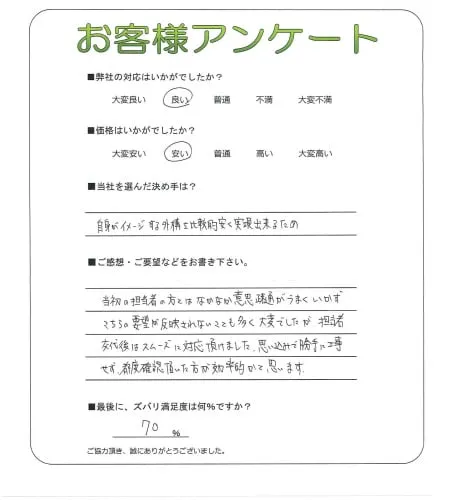 お客様アンケート
■弊社の対応はいかがでしたか？
大変良い 良い 普通 不満 大変不満
■価格はいかがでしたか？
大変安い 安い 普通 高い 大変高い
■当社を選んだ決め手は？
自身がイメージする外構を比較的安く実現出来るため
■ご感想・ご要望などをお書き下さい。
当初の担当者の方とはなかなか意思疎通がうまくいかず
こちらの要望が反映されないことも多く大変でしたが 担当者
交代後はスムーズに対応頂けました。思い込みで勝手に工事
せず、都度確認頂いた方が効率的かと思います。
■最後に、ズバリ満足度は何％ですか？
70 %
ご協力頂き、誠にありがとうございました。